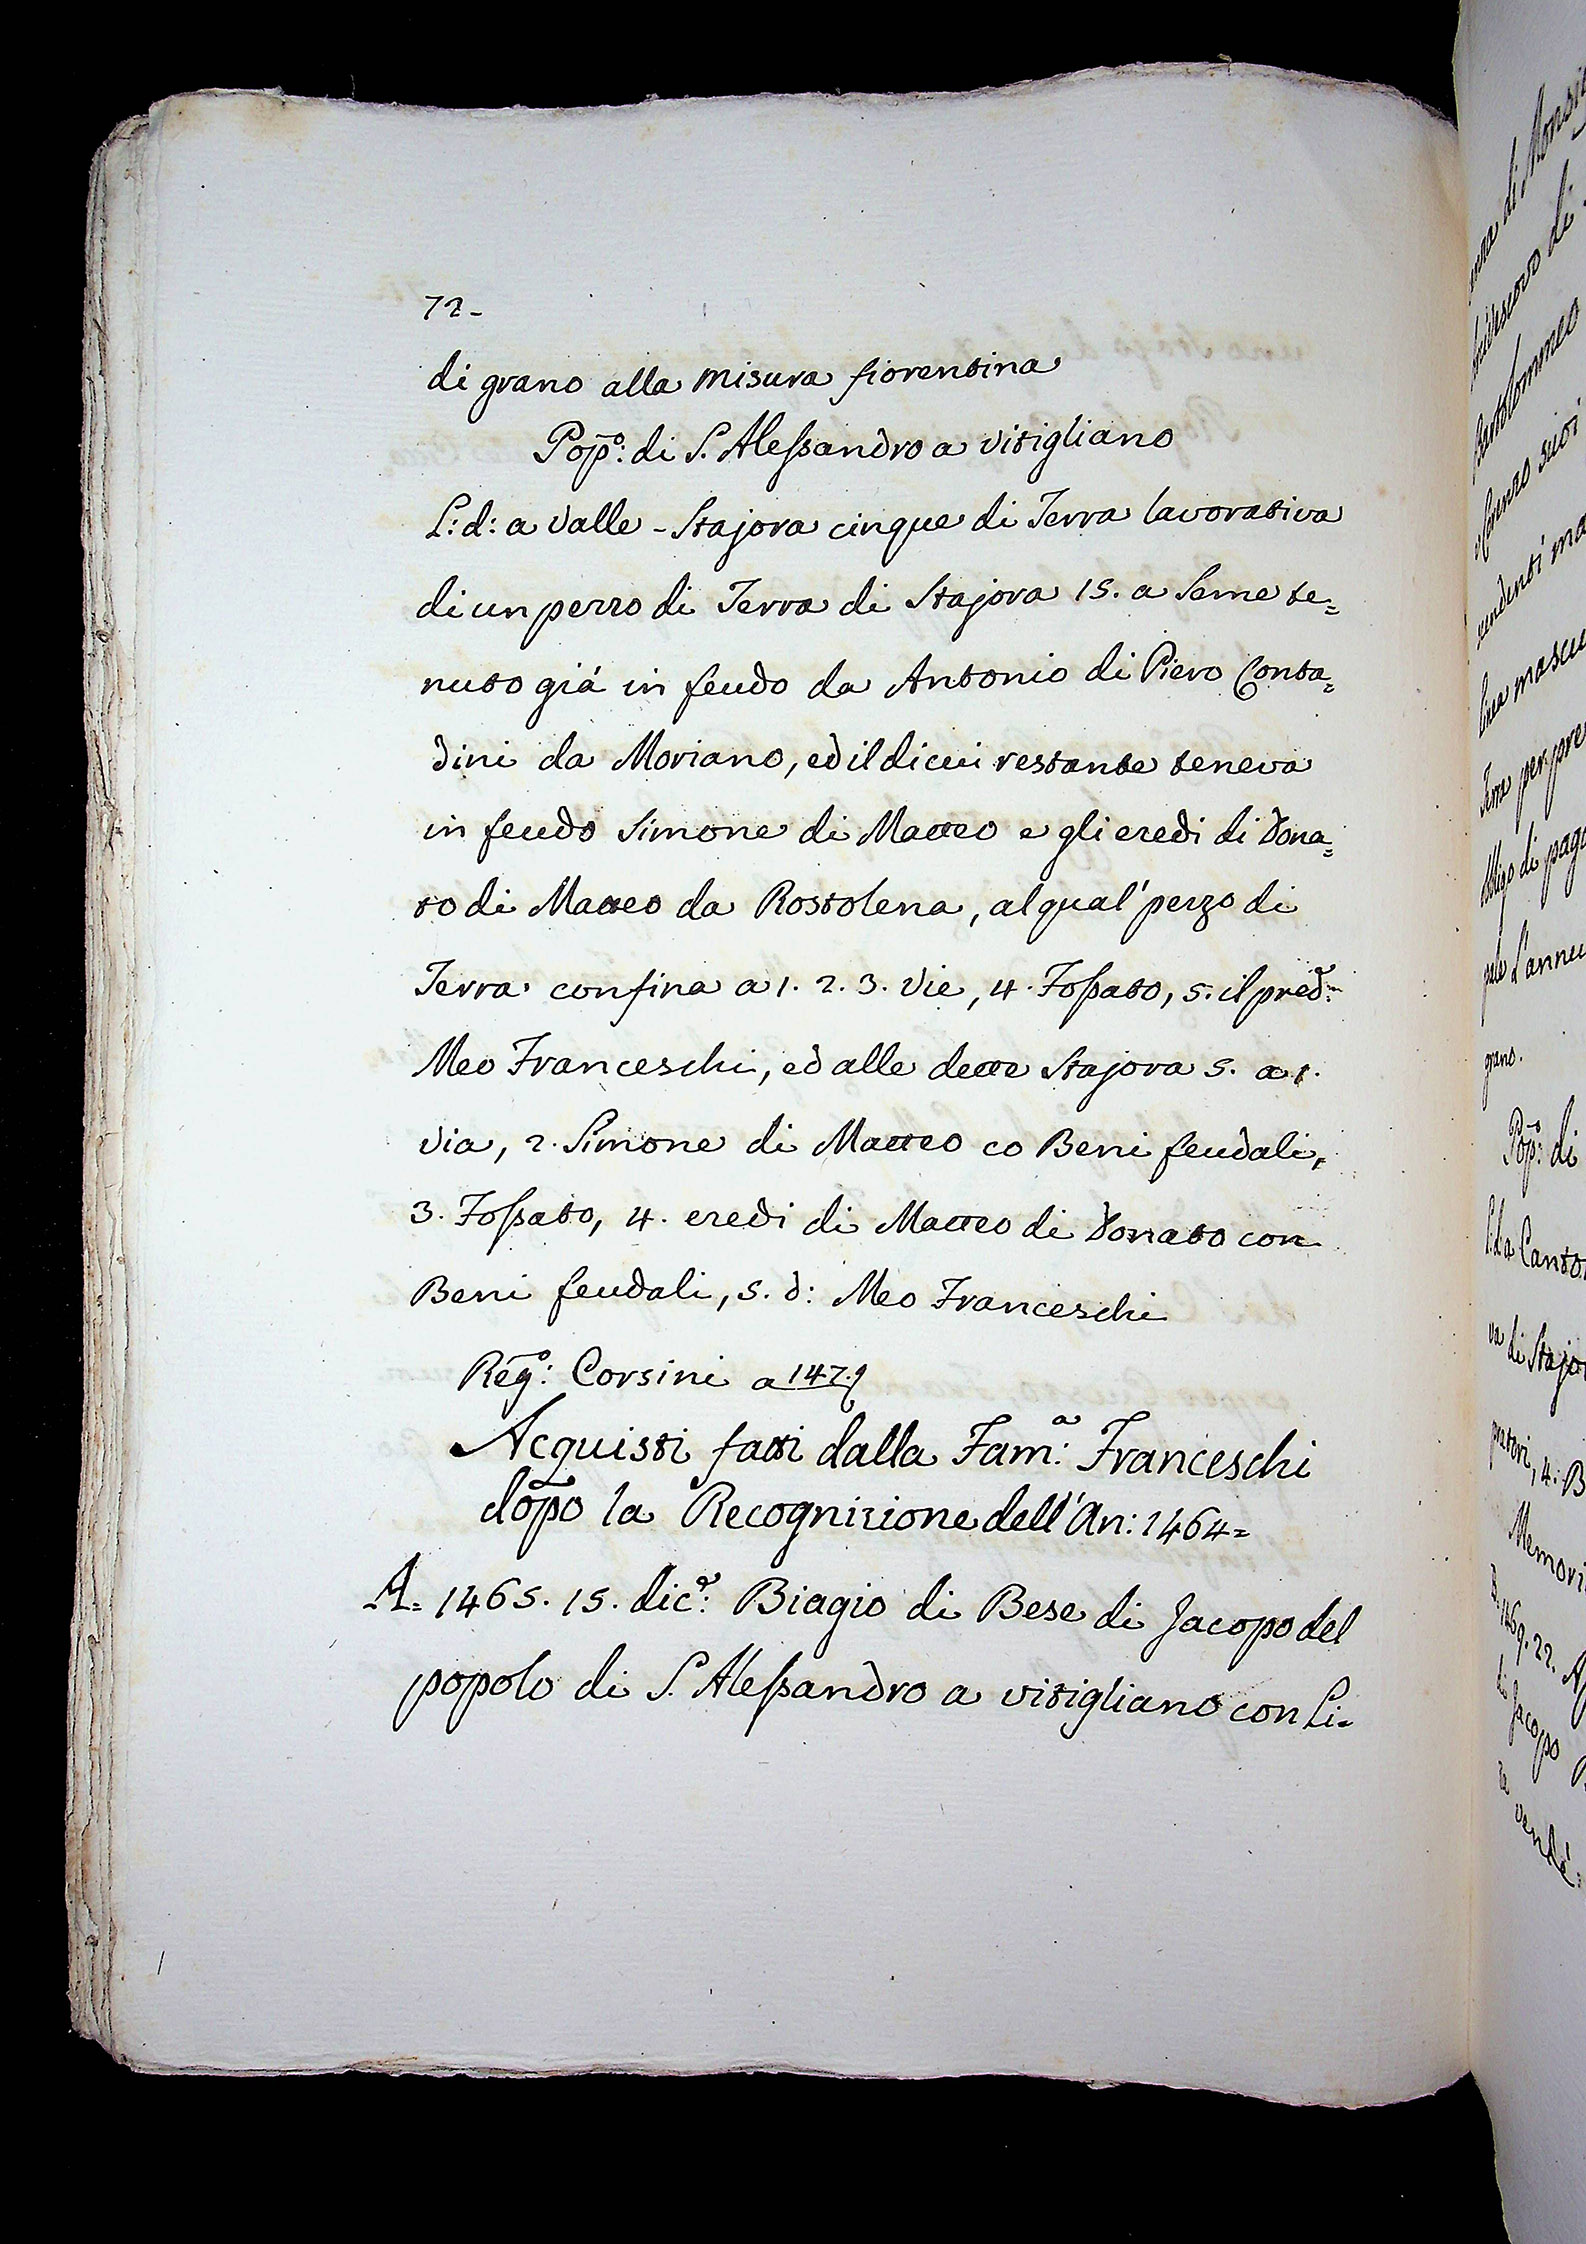 72-
di grano alla misura fiorentina
Pop̃º: di S. Alessandro a vitigliano
L: d: a Valle - Stajora cinque di Terra lavorativa
di un pezzo di Terra di Stajora 15. a Seme te=
nuto giá in feudo da Antonio di Piero Conta=
dini da Moriano, ed il di cui restante teneva
in feudo Simone di Matteo e gli eredi di Dona=
to di Matteo da Rostolena, al qual' pezzo di
Terra confina a 1. 2. 3. Vie, 4. Fossato, 5. il pred:
Meo Franceschi, ed alle dette Stajora 5. a 1.
via, 2. Simone di Matteo co Beni feudali,
3. Fossato, 4. eredi di Matteo di Donato con
Beni feudali, 5. d: Meo Franceschi
Regº: Corsini a 147.
Acquisti fatti dalla Famª: Franceschi
dopo la Recognizione dell' An: 1464=
A= 1465. 15. dicᵉ: Biagio di Bese di Jacopo del
popolo di S. Alessandro a vitigliano con Li=
di Mons
di
Bartolommeo
suoi
linea mascu
Terra per pre
obbligo di pag
l'annu
grano.
Popº: di
L: d: a Canto
va di Stajo
4. B
Memori
22.
di Jacopo
vendé